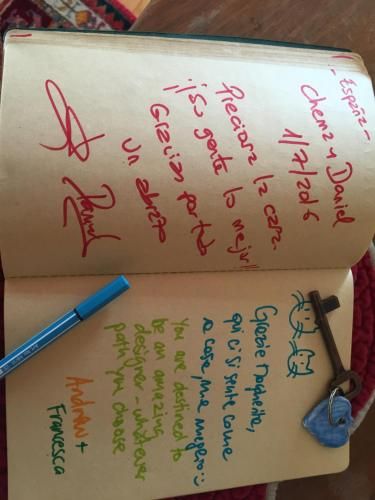 - España -
Chema y Daniel
1/7/2016
Preciosa la casa.
¡¡Su gente lo mejor!!
Gracias por todo
Un abrazo
Daniel
Grazie
qui ci si sente come
a casa, ma meglio :)
You are destined to
be an amazing
designer - whatever
path you choose
Andrew +
Francesca